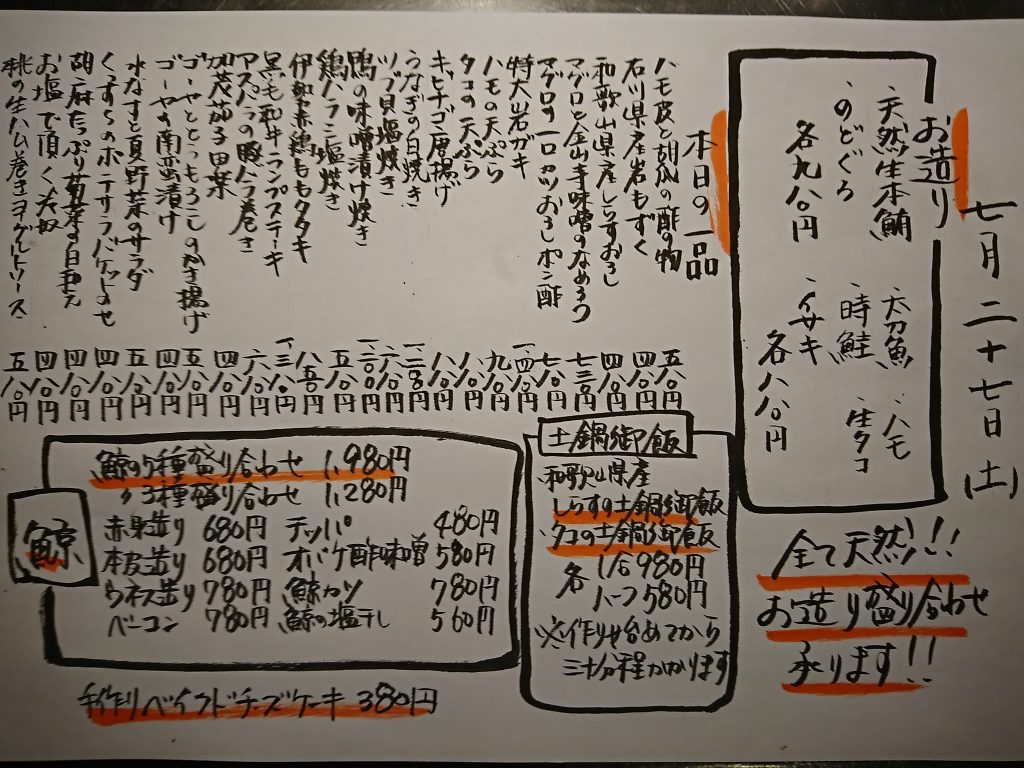 七月二十七日(土)
お造り
・天然生本鮪
・のどぐろ
各九八〇円
・太刀魚・ハモ
・時鮭・生タコ
・イサキ
各八八〇円
全て天然!!
お造り盛り合わせ
承ります!!
本日の一品
ハモ皮と胡瓜の酢の物 五八〇円
石川県産岩もずく 四八〇円
和歌山県産しらすおろし 四八〇円
マグロと金山寺味噌のなめろう 七三〇円
マグロの一口カツおろしポン酢 七八〇円
特大岩ガキ 一、四八〇円
ハモの天ぷら 九八〇円
タコの天ぷら 八八〇円
キビナゴ唐揚げ 八〇円
うなぎの白焼き
ツブ貝塩焼き 六八〇円
鴨の味噌漬け焼き
鶏ハラミ塩焼き 五八〇円
伊勢赤鶏ももタタキ 八五〇円
黒毛和牛ランプステーキ 一、三八〇円
アスパラの豚バラ巻き 六八〇円
加茂茄子田楽 四八〇円
ゴーヤととうもろこしのかき揚げ 五八〇円
ゴーヤの南蛮漬け 四八〇円
水なすと夏野菜のサラダ 五八〇円
のポテサラバゲットのせ 四八〇円
胡麻たっぷり菊菜の白和え 四八〇円
お塩で頂く冷奴 四八〇円
桃の生ハム巻きヨーグルトソース 五八〇円
土鍋御飯
和歌山県産
しらすの土鍋御飯
タコの土鍋御飯
各 1合980円
ハーフ580円
※作り始めてから
三十分程かかります
鯨
鯨の5種盛り合わせ 1,980円
〃3種盛り合わせ 1,280円
赤身造り 680円 テッパ 480円
本皮造り 680円 オバケ酢味噌 580円
ウネス造り 780円 鯨カツ 780円
ベーコン 780円 鯨の塩干し 560円
手作りベイクドチーズケーキ 380円